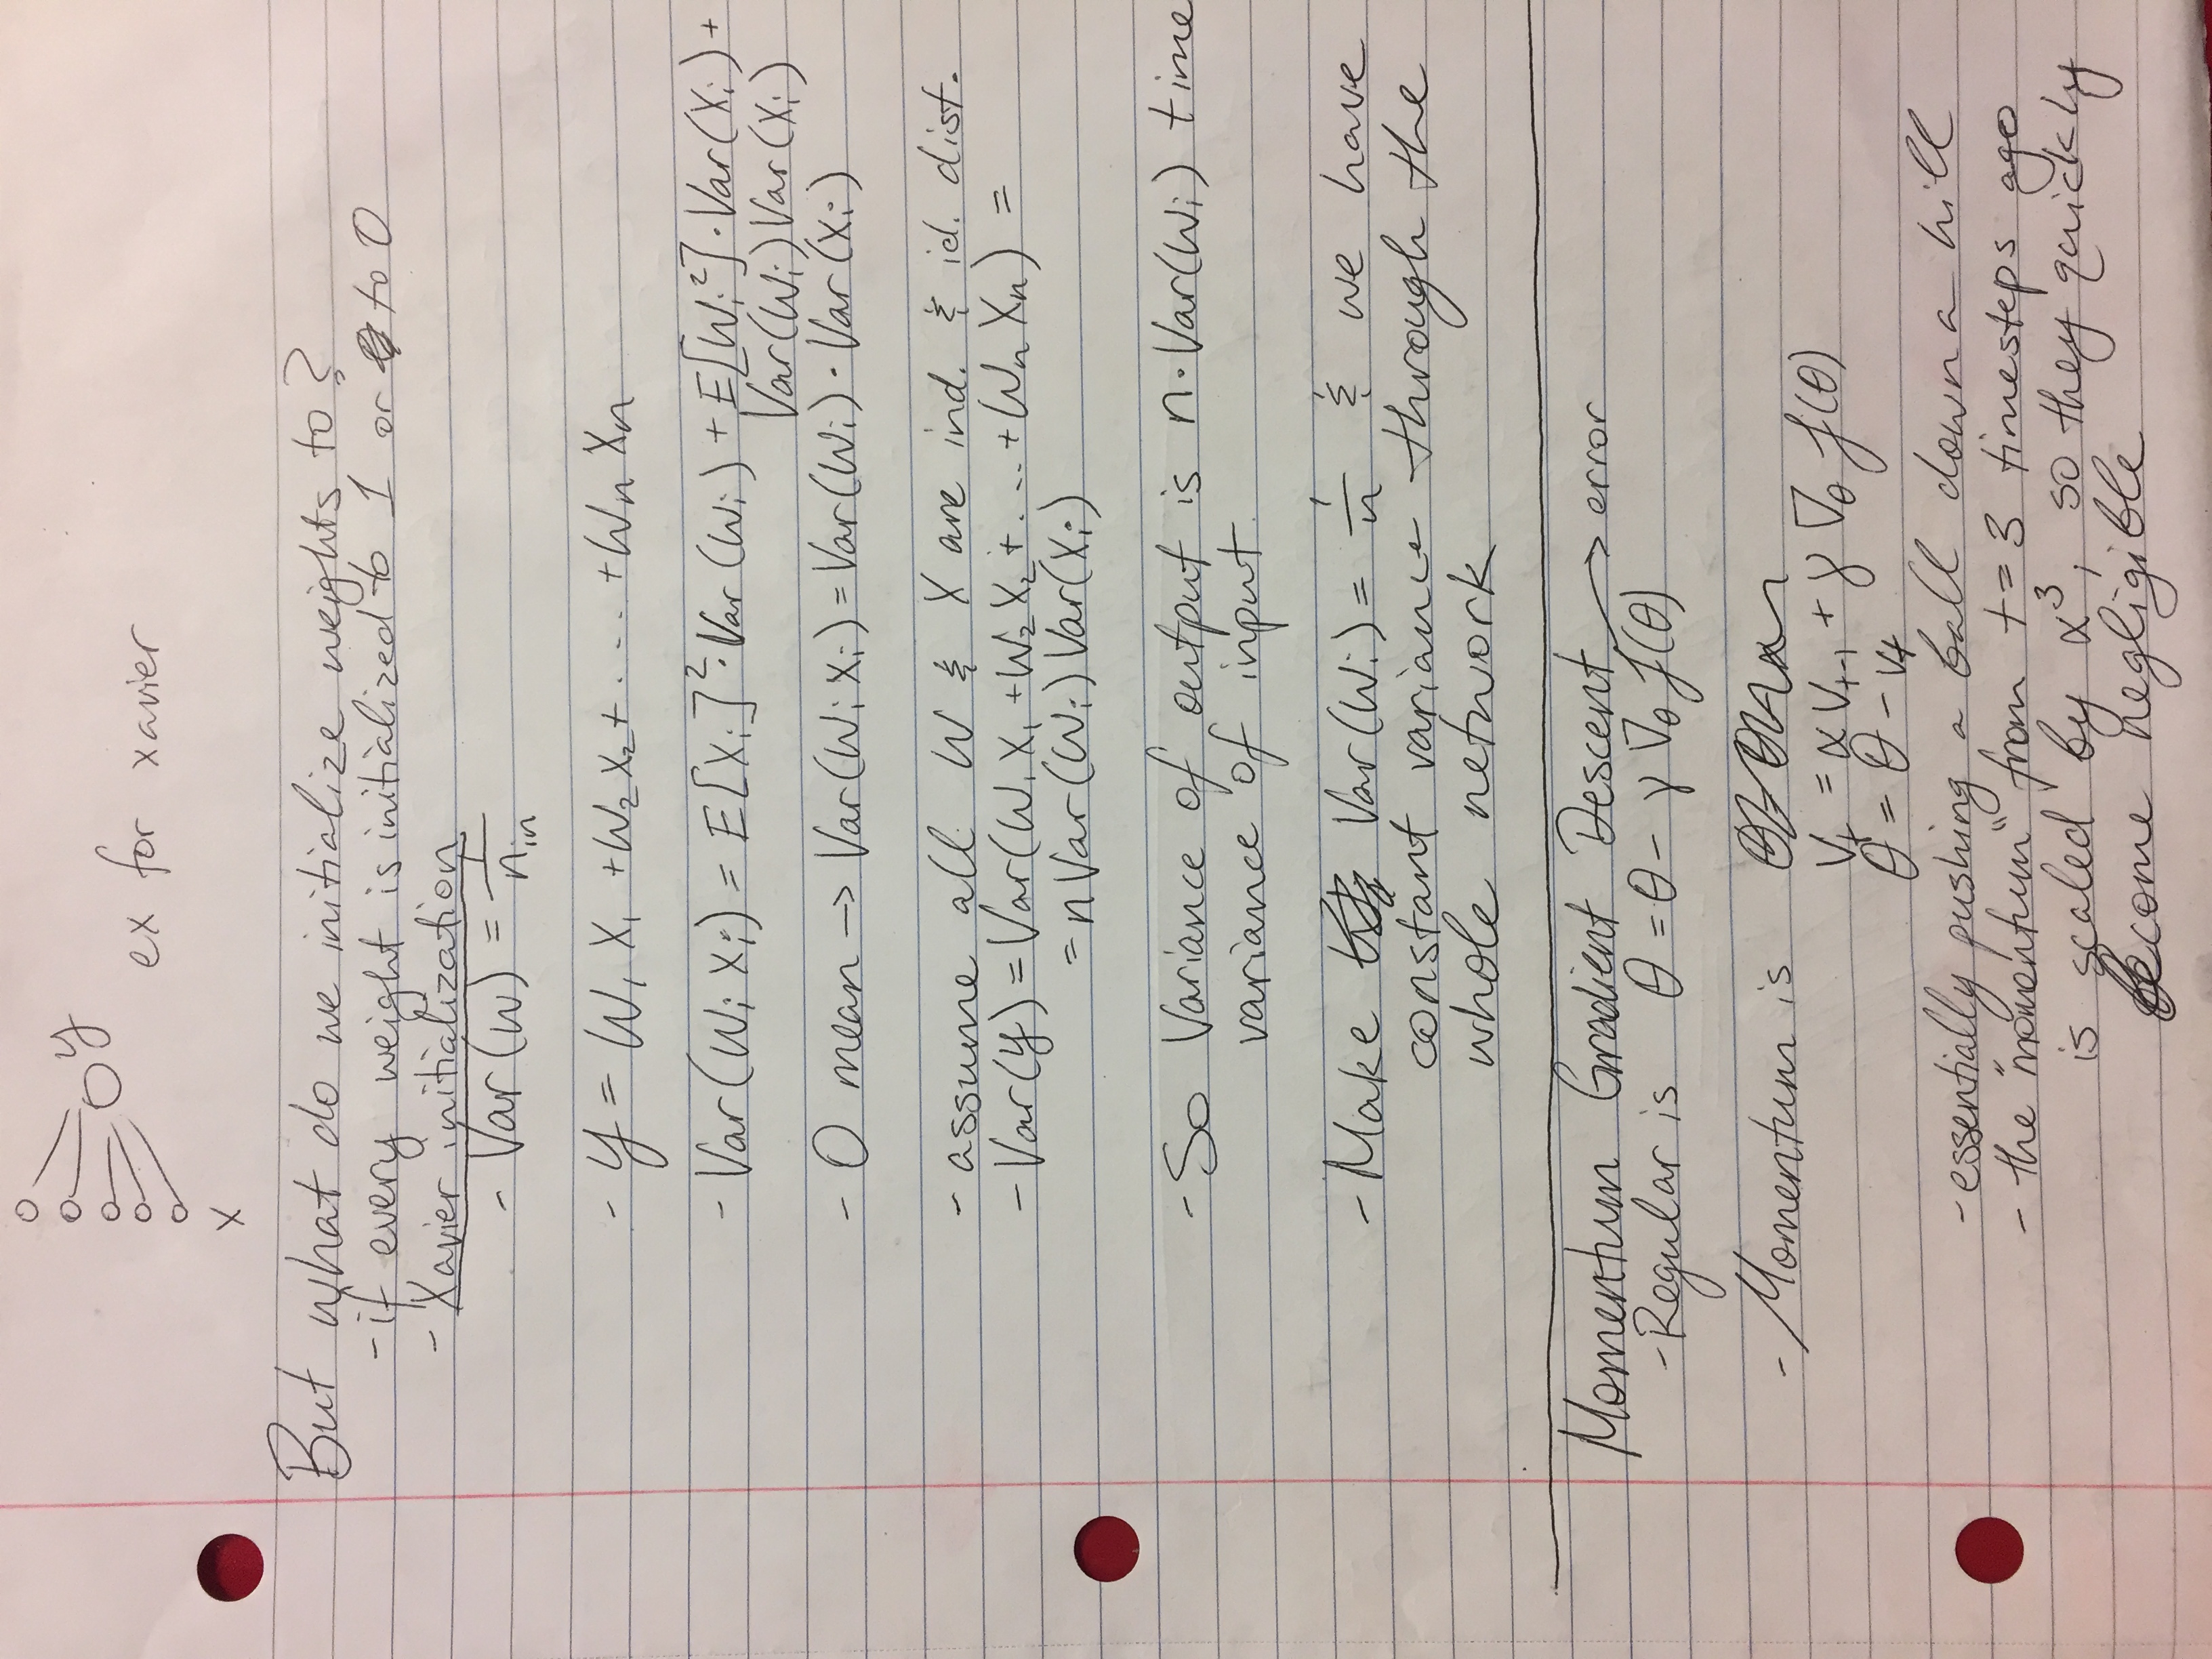 y
ex for xavier
X
But what do we initialize weights to?
- if every weight is initialized to 1 or to 0
- Xavier initialization
- Var(w) = 1/n_in
- y = W₁X₁ + W₂X₂ + .... + WₙXₙ
- Var(WᵢXᵢ) = E[Xᵢ]²·Var(Wᵢ) + E[Wᵢ²]·Var(Xᵢ) +
Var(Wᵢ)Var(Xᵢ)
- 0 mean → Var(WᵢXᵢ) = Var(Wᵢ)·Var(Xᵢ)
- assume all W & X are ind. & id. dist.
- Var(y) = Var(W₁X₁ + W₂X₂ + .... + WₙXₙ) =
= nVar(Wᵢ)Var(Xᵢ)
- So Variance of output is n·Var(Wᵢ) time
variance of input
- Make Var(Wᵢ) = 1/n & we have
constant variance through the
whole network
Momentum Gradient Descent → error
- Regular is θ = θ - γ ∇_θ f(θ)
- Momentum is
V_t = αV_{t-1} + γ ∇_θ f(θ)
θ = θ - V_t
- essentially pushing a ball down a hill
- the "momentum" from t=3 timesteps ago
is scaled by α³, so they quickly
become negligible